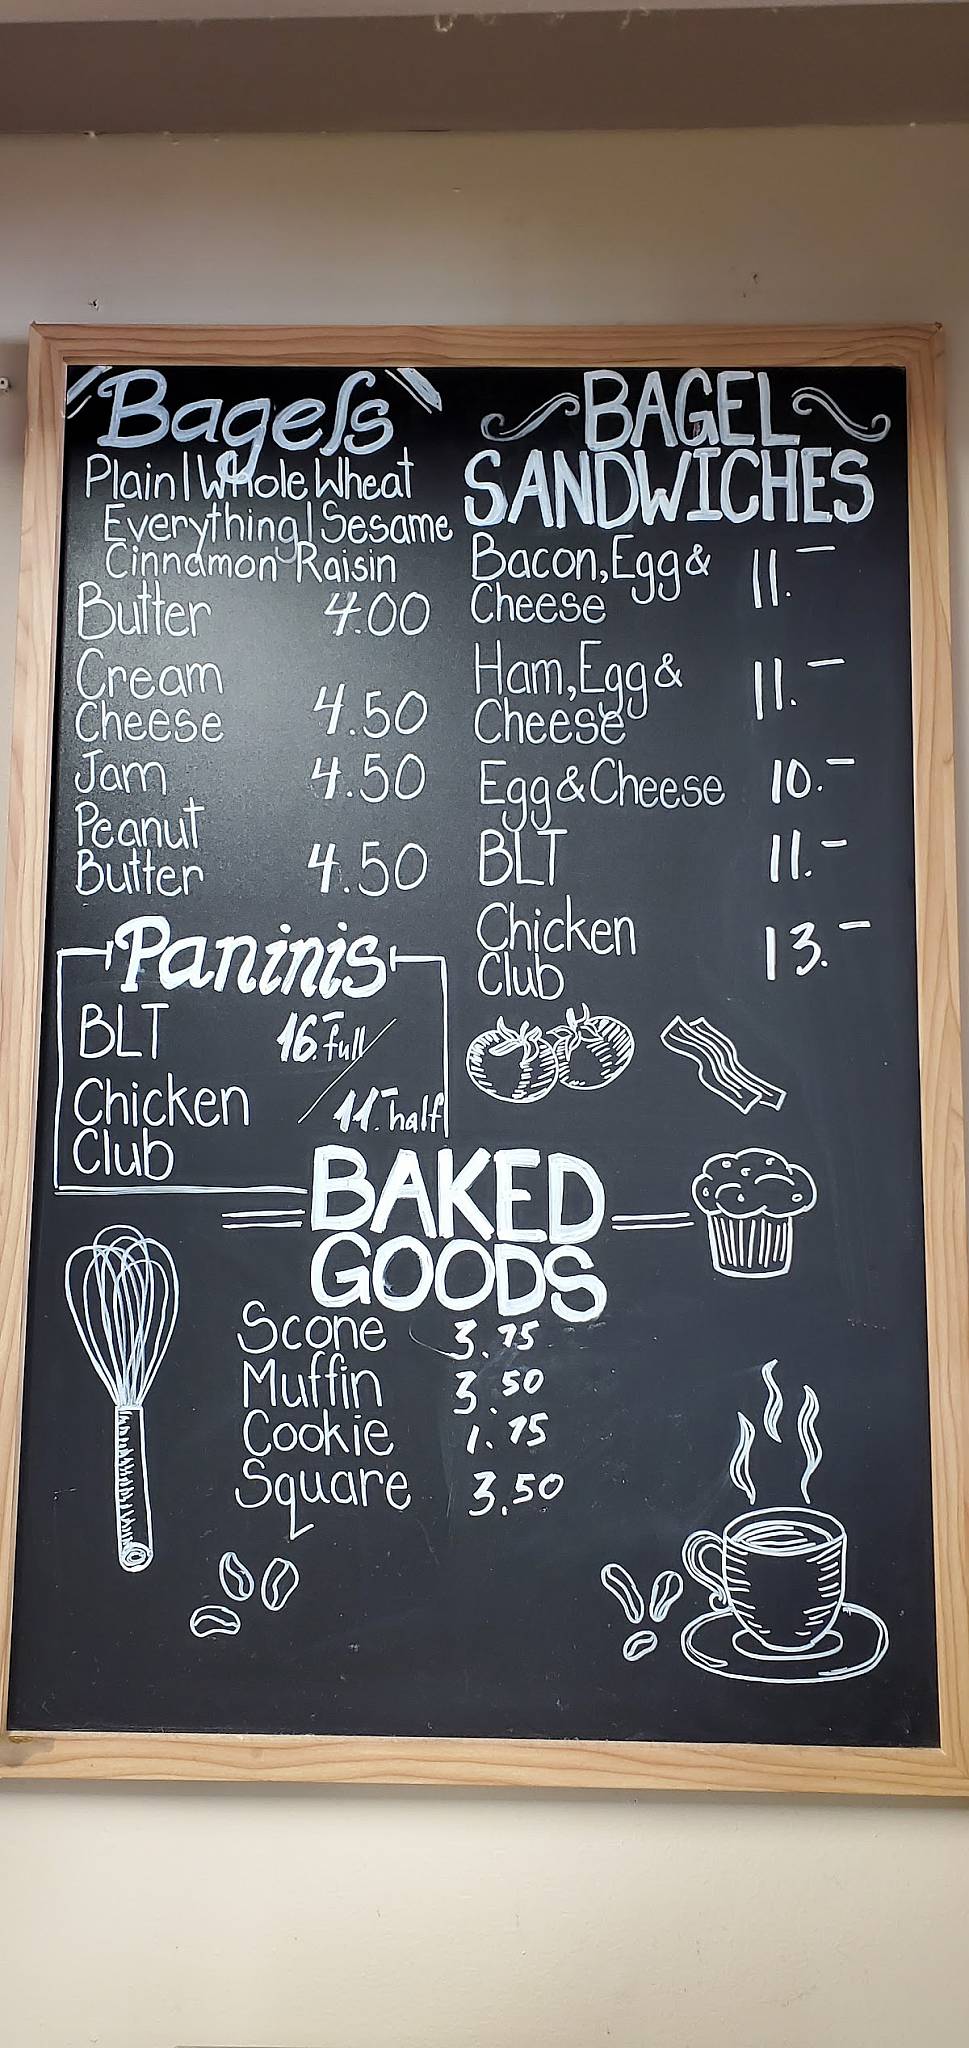 Bagels
Plain | Whole Wheat
Everything | Sesame
Cinnamon Raisin
Butter 4.00
Cream
Cheese 4.50
Jam 4.50
Peanut
Butter 4.50
Paninis
BLT 16.– full/
Chicken 11.– half
Club
BAGEL
SANDWICHES
Bacon, Egg & 11.–
Cheese
Ham, Egg & 11.–
Cheese
Egg & Cheese 10.–
BLT 11.–
Chicken 13.–
Club
BAKED
GOODS
Scone 3.75
Muffin 3.50
Cookie 1.75
Square 3.50